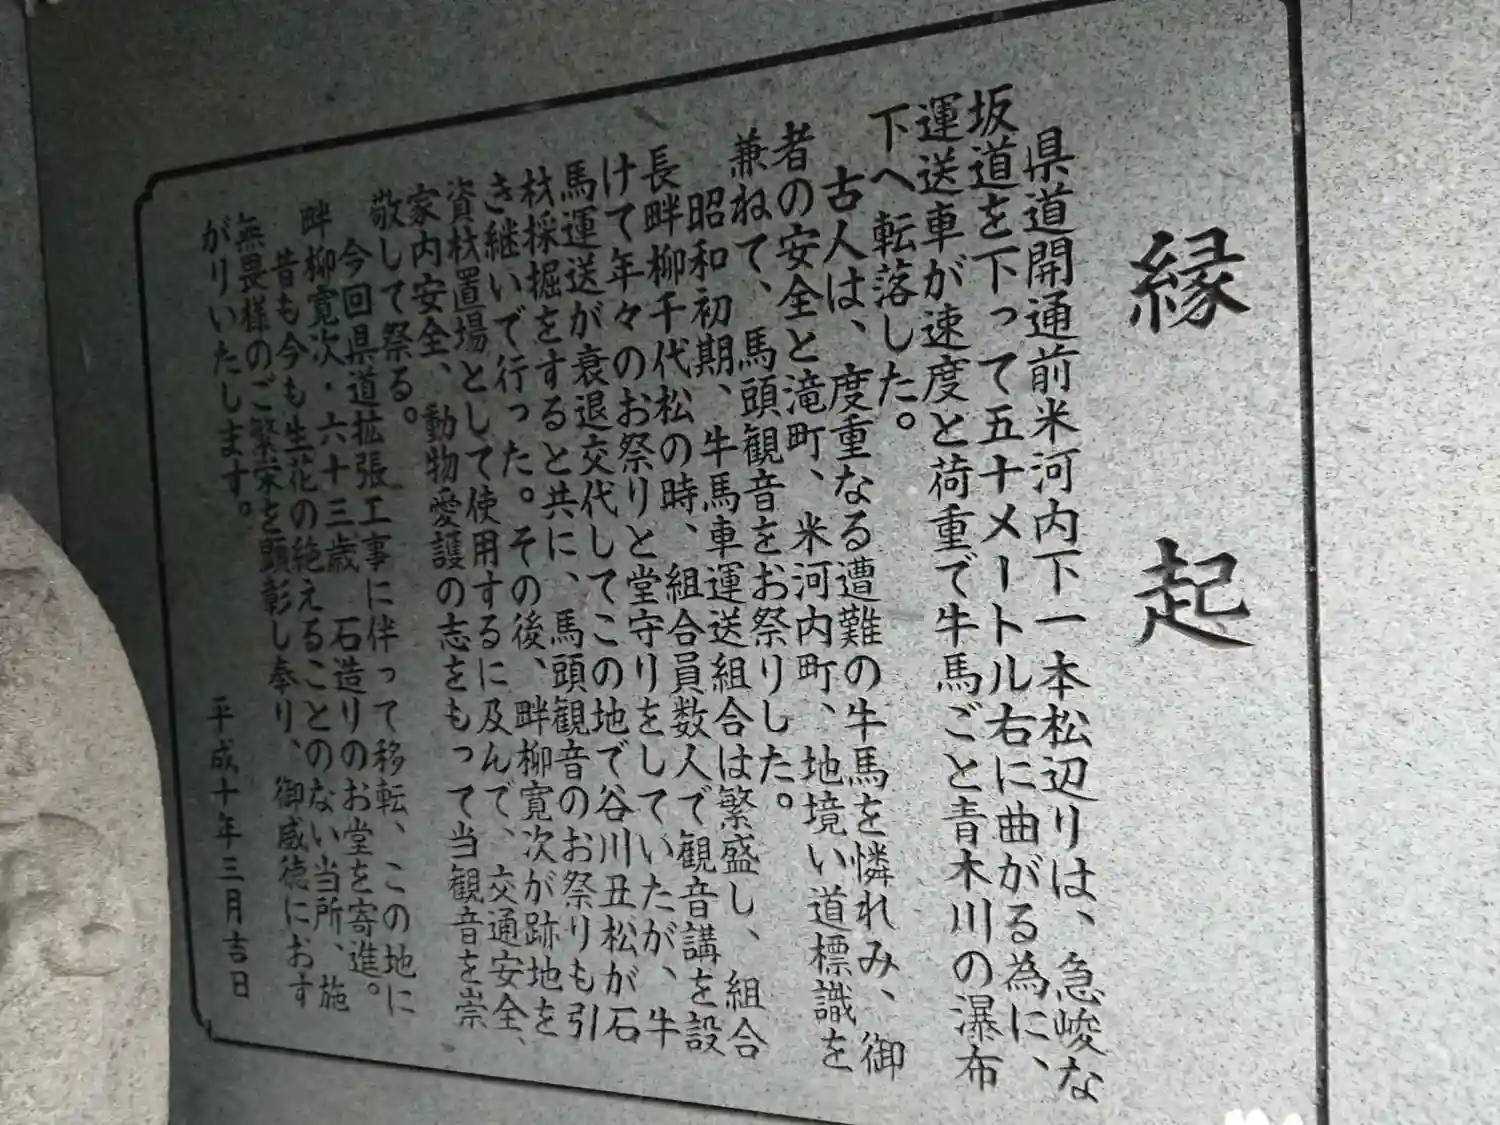 縁起
県道開通前米河内下一本松辺りは、急峻な
坂道を下って五十メートル右に曲がる為に、
運送車が速度と荷重で牛馬ごと青木川の瀑布
下へ転落した。
古人は、度重なる遭難の牛馬を憐れみ、御
者の安全と滝町、米河内町、地境い道標識を
兼ねて、馬頭観音をお祭りした。
昭和初期、牛馬車運送組合は繁盛し、組合
長畔柳千代松の時、組合員数人で観音講を設
けて年々のお祭りと堂守りをしていたが、牛
馬運送が衰退交代してこの地で谷川丑松が石
材採掘をすると共に、馬頭観音のお祭りも引
き継いで行った。その後、畔柳寛次が跡地を
資材置場として使用するに及んで、交通安全、
家内安全、動物愛護の志をもって当観音を崇
敬して祭る。
今回県道拡張工事に伴って移転、この地に
畔柳寛次・六十三歳、石造りのお堂を寄進。
昔も今も生花の絶えることのない当所、施
無畏様のご繁栄を顕彰し奉り、御威徳におす
がりいたします。
平成十年三月吉日